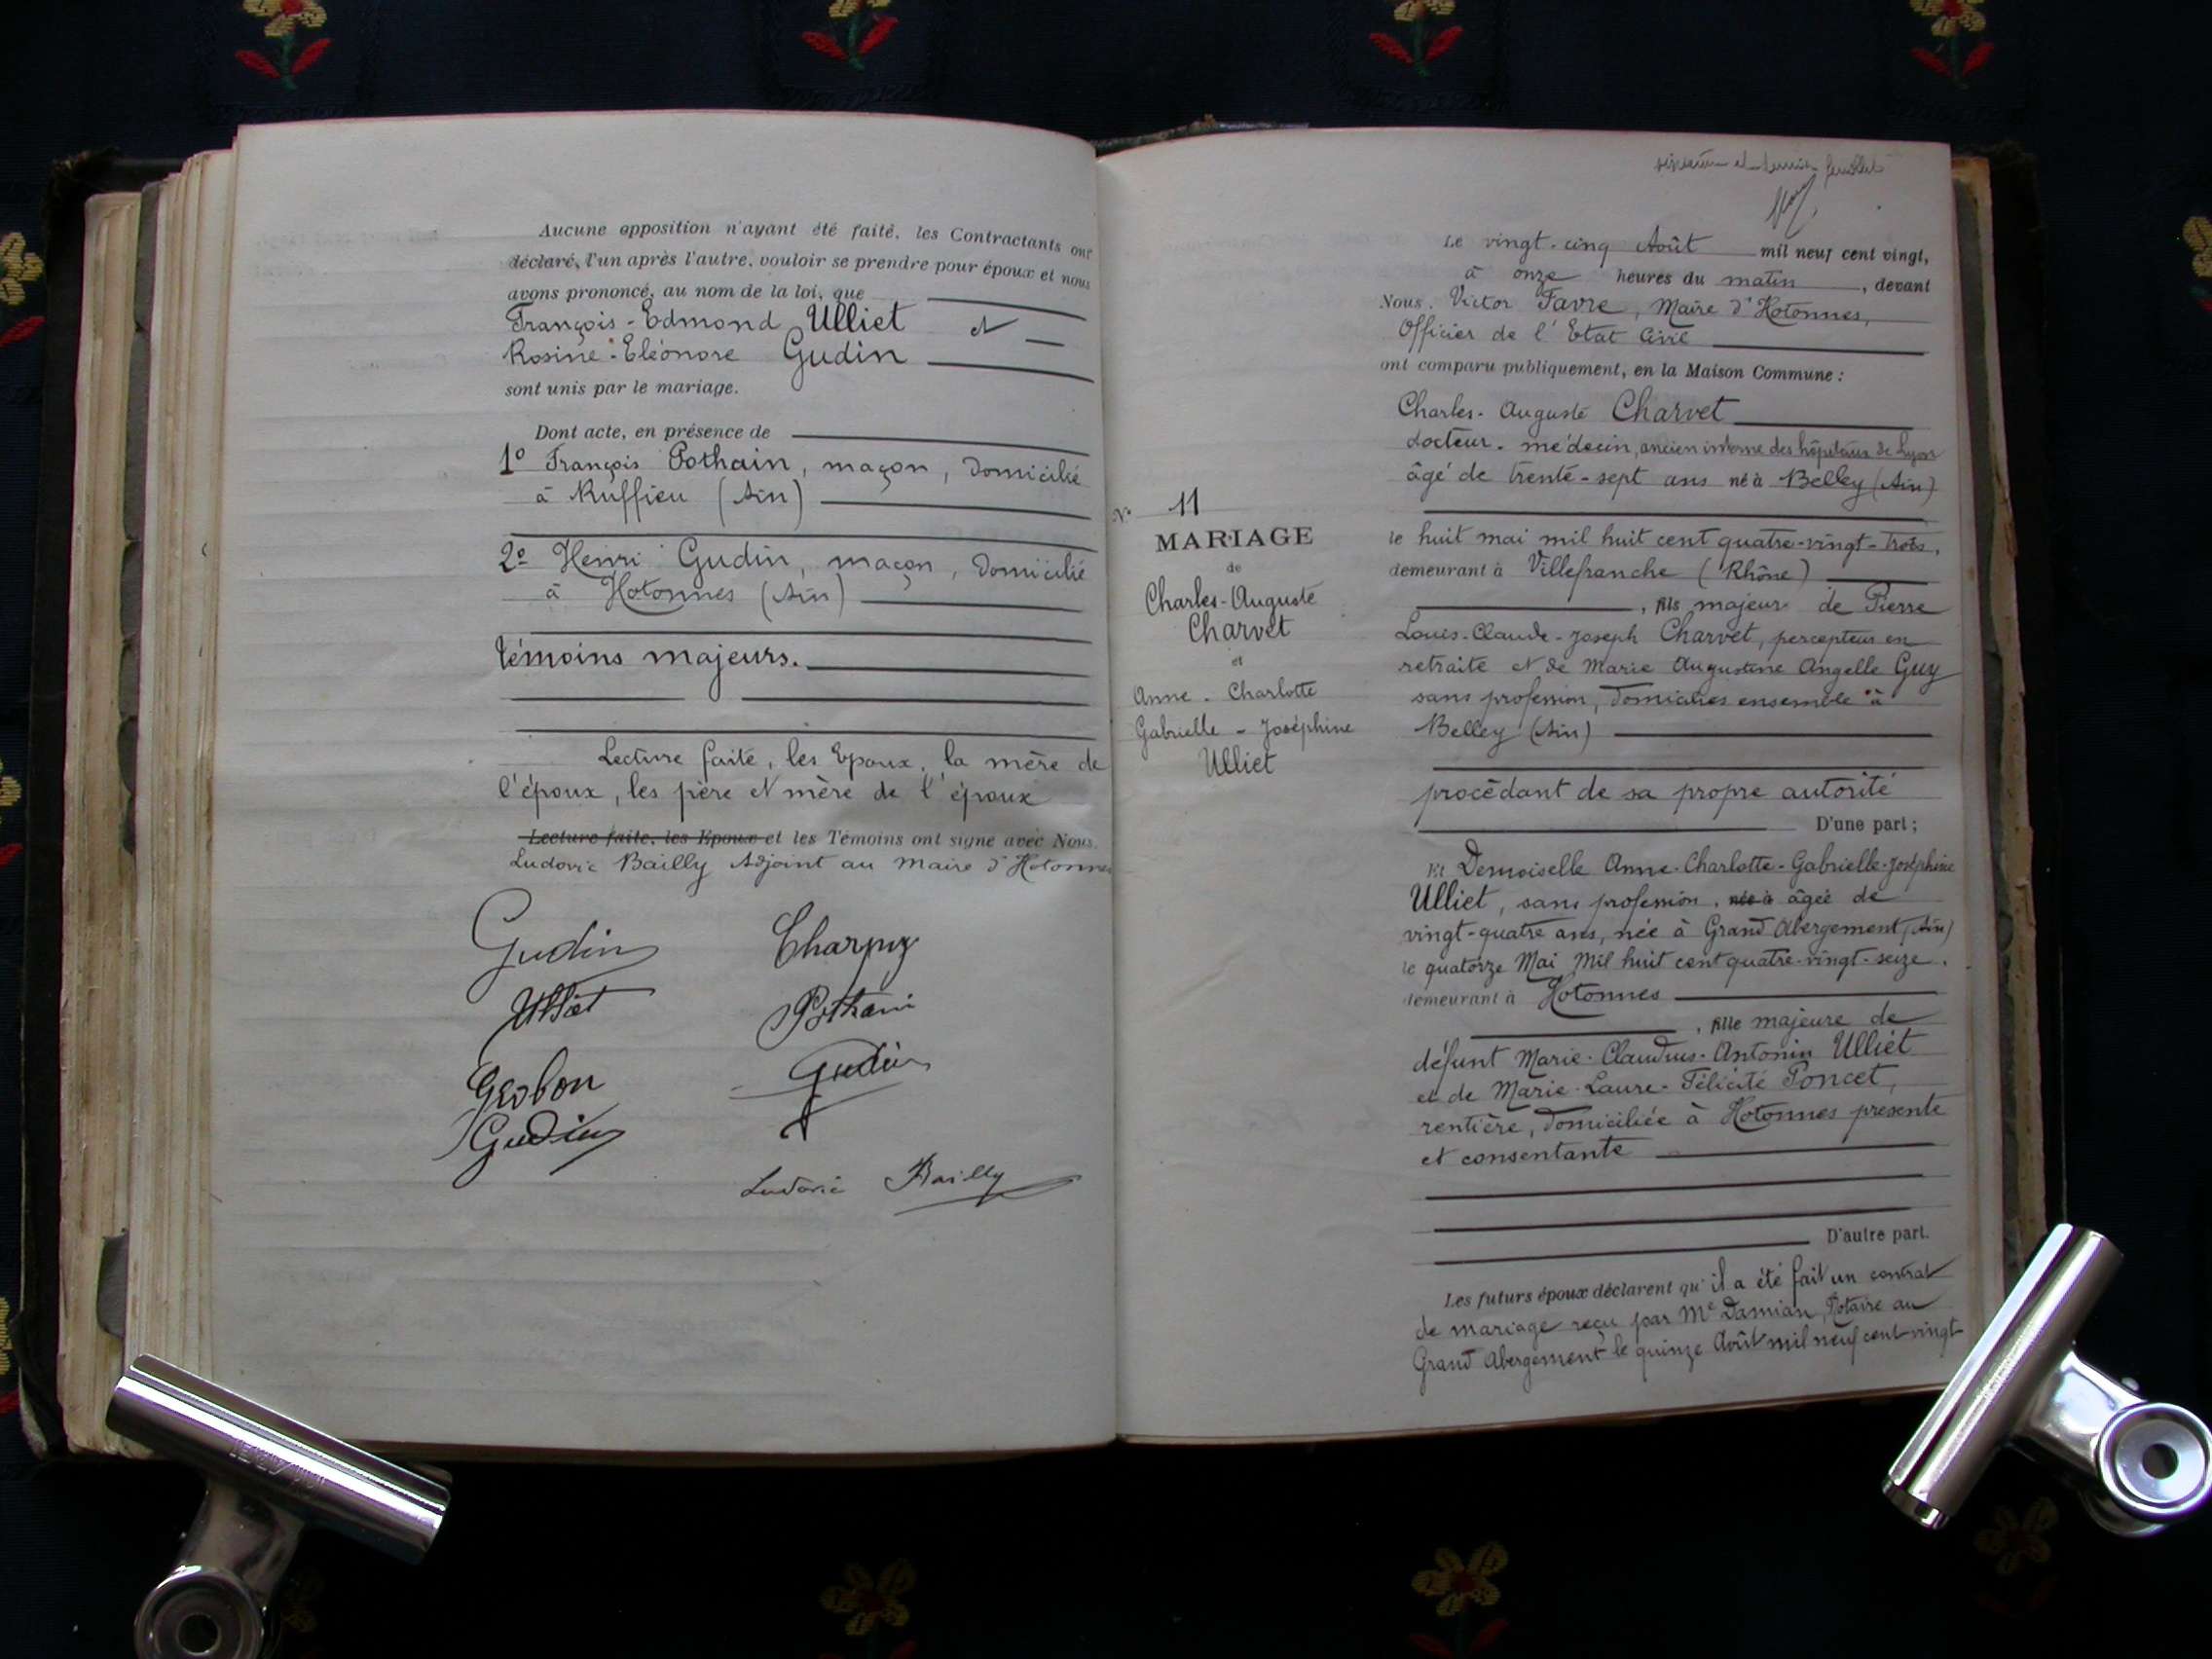 Aucune opposition n'ayant été faite, les Contractants ont
déclaré, l'un après l'autre, vouloir se prendre pour époux et nous
avons prononcé, au nom de la loi, que
François-Edmond Ulliet et
Rosine-Eléonore Gudin
sont unis par le mariage.
Dont acte, en présence de
1º François Pothain, maçon, domicilié
à Ruffieu (Ain)
2º Henri Gudin, maçon, domicilié
à Hotonnes (Ain)
témoins majeurs.
Lecture faite, les Epoux, la mère de
l'époux, les père et mère de l'époux
Lecture faite, les Epoux et les Témoins ont signé avec Nous.
Ludovic Bailly Adjoint au Maire d'Hotonnes
Gudin Charpy
Ulliet Pothain
Gerbon Gudin
Gudin
Ludovic Bailly
et dernier feuillet
Nº 11
MARIAGE
de
Charles-Auguste
Charvet
et
Anne-Charlotte
Gabrielle-Joséphine
Ulliet
Le vingt-cinq Août mil neuf cent vingt,
à onze heures du matin, devant
Nous, Victor Favre, Maire d'Hotonnes,
Officier de l'Etat Civil
ont comparu publiquement, en la Maison Commune :
Charles-Auguste Charvet
docteur-médecin, ancien interne des hôpitaux de Lyon
âgé de trente-sept ans né à Belley (Ain)
le huit mai mil huit cent quatre-vingt-trois,
demeurant à Villefranche (Rhône)
, fils majeur de Pierre
Louis-Claude-Joseph Charvet, percepteur en
retraite et de Marie Augustine Angelle Guy
sans profession, domiciliés ensemble à
Belley (Ain)
procédant de sa propre autorité
D'une part ;
Et Demoiselle Anne-Charlotte-Gabrielle-Joséphine
Ulliet, sans profession, née à âgée de
vingt-quatre ans, née à Grand Abergement (Ain)
le quatorze Mai Mil huit cent quatre-vingt-seize.
demeurant à Hotonnes
, fille majeure de
défunt Marie-Claudius-Antonin Ulliet
et de Marie-Laure-Félicité Poncet,
rentière, domiciliée à Hotonnes présente
et consentante
D'autre part.
Les futurs époux déclarent qu'il a été fait un contrat
de mariage reçu par Me Damian, Notaire au
Grand Abergement le quinze Août mil neuf cent vingt